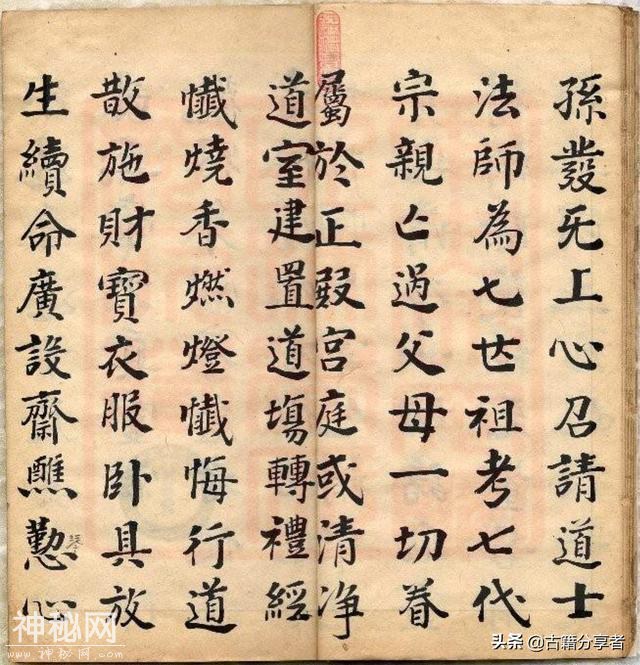 孫發旡上心召請道士
法師為七世祖考七代
宗親亡過父母一切眷
屬於正殿宮庭或清净
道室建置道塲轉禮經
懺燒香燃燈懺悔行道
散施財寶衣服卧具放
生續命廣設齋醮懃心
神秘网
www.神秘网.com
头条 @古籍分享者